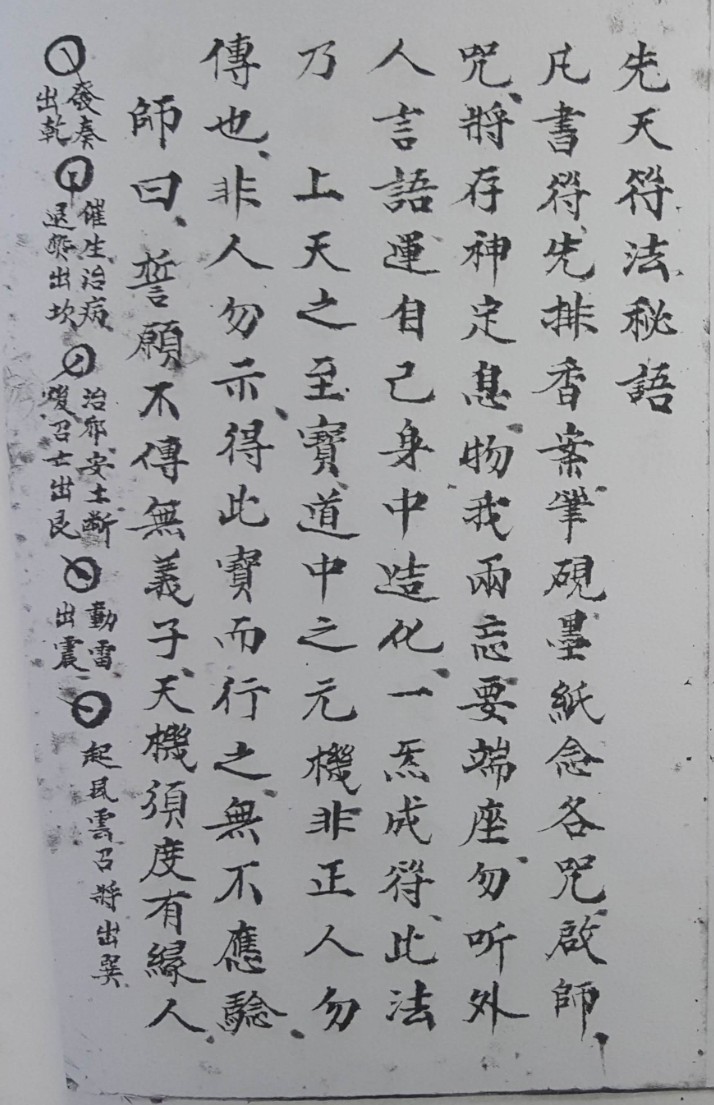 先天符法秘語
凡書符、先排香案筆硯墨紙念各咒啟師、
咒、將存神定息物我兩忘要端座勿听外
人言語運自己身中造化、一炁成符、此法
乃 上天之至寶道中之元機非正人勿
傳也、非人勿示得此寶而行之無不應驗、
師曰、誓願不傳無義子、天機須度有緣人、
發奏
出乾
催生治病
出坎
治邪安土斷
召士出艮
勳雷
出震
起風雲召將出巽